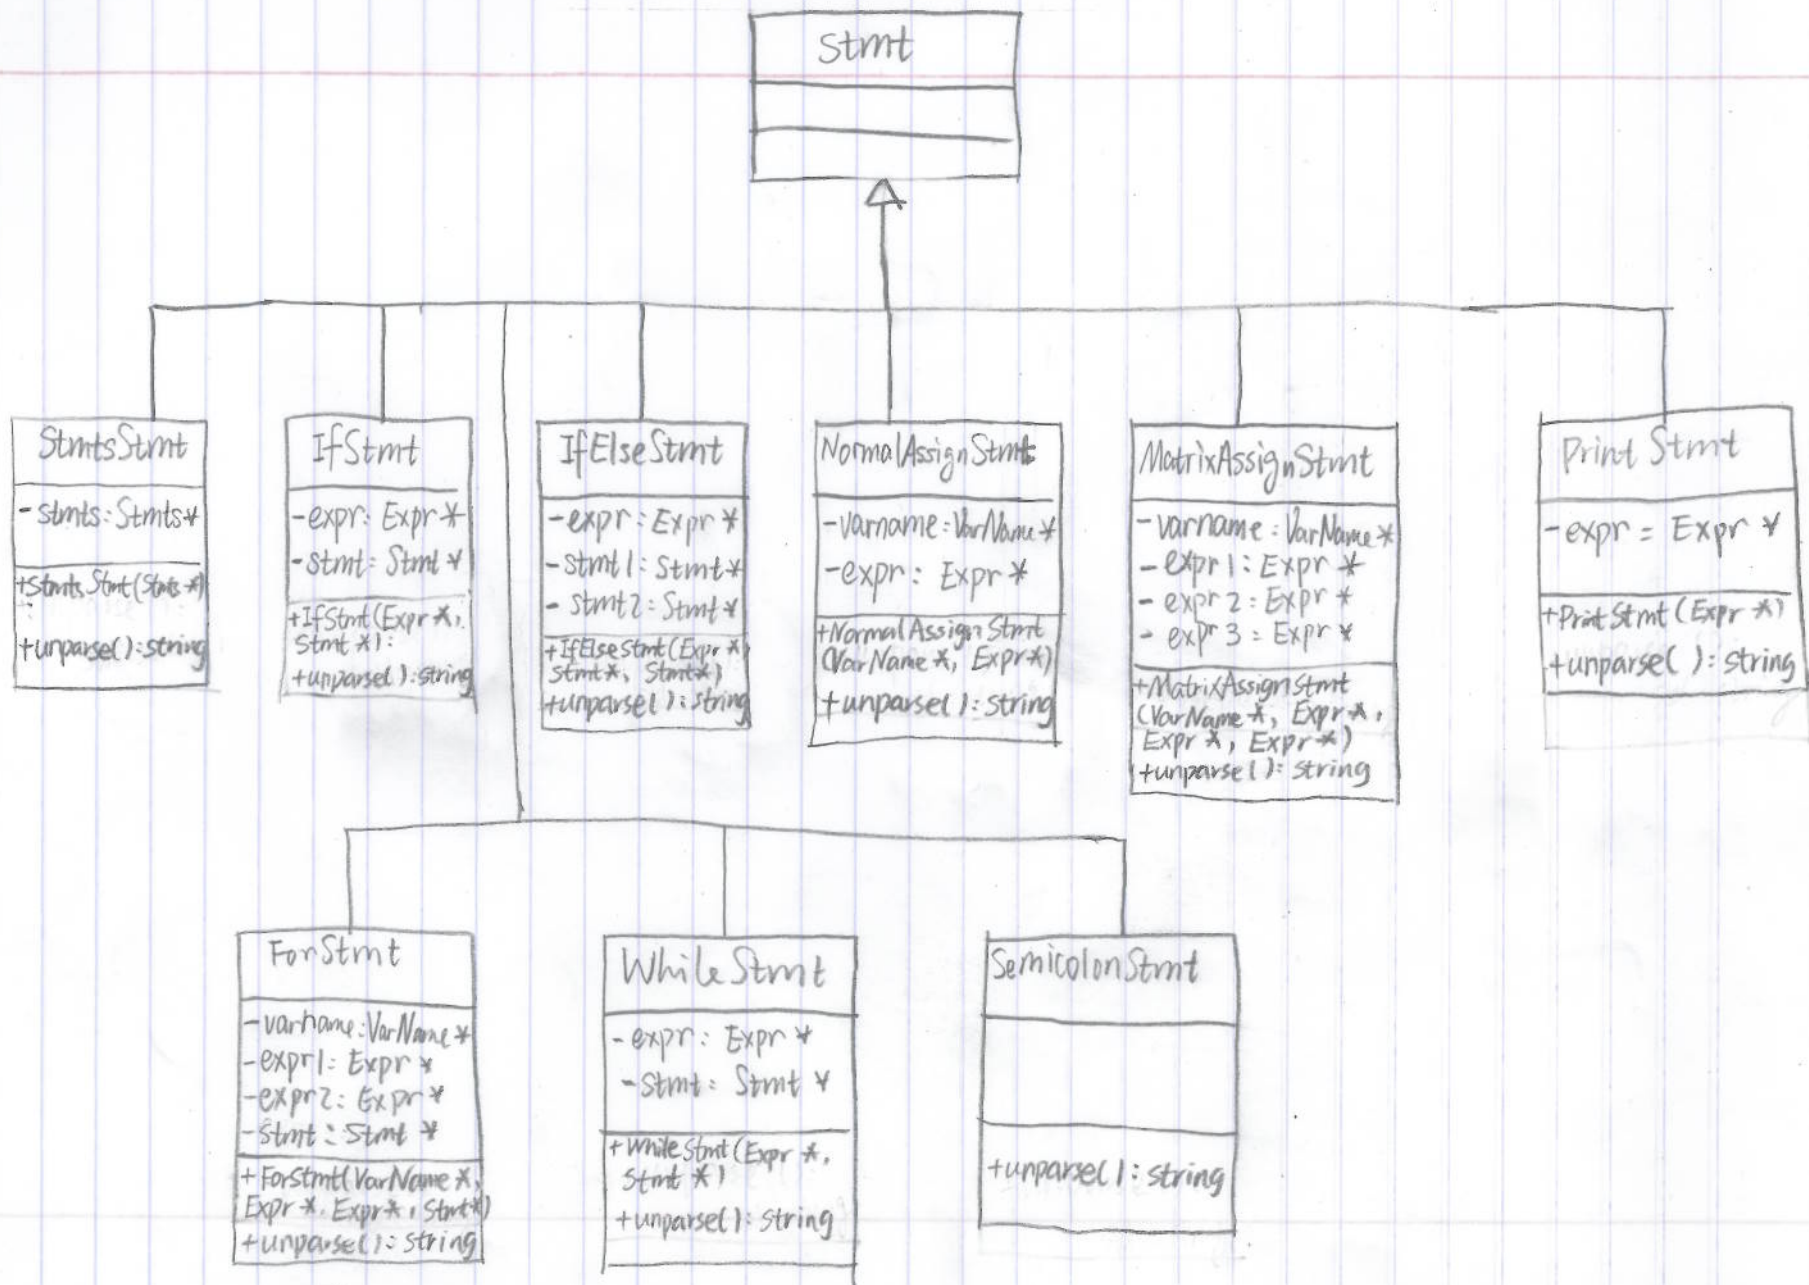 Stmt
StmtsStmt
- stmts: Stmts*
+StmtsStmt(Stmts *)
:
+unparse(): string
IfStmt
-expr: Expr *
-stmt: Stmt *
+IfStmt(Expr *,
Stmt *):
+unparse(): string
IfElseStmt
-expr: Expr *
-stmt1: Stmt*
- stmt2: Stmt*
+IfElseStmt(Expr *,
Stmt*, Stmt*)
+unparse(): string
NormalAssignStmt
-varname: VarName *
-expr: Expr *
+NormalAssignStmt
(VarName *, Expr*)
+unparse(): string
MatrixAssignStmt
-varname: VarName *
- expr1: Expr *
- expr2: Expr *
- expr3: Expr *
+MatrixAssignStmt
(VarName *, Expr *,
Expr *, Expr *)
+unparse(): string
PrintStmt
-expr: Expr *
+PrintStmt(Expr *)
+unparse(): string
ForStmt
-varname: VarName *
-expr1: Expr *
-expr2: Expr *
-stmt: Stmt *
+ForStmt(VarName *,
Expr *, Expr *, Stmt*)
+unparse(): string
WhileStmt
-expr: Expr *
-stmt: Stmt *
+WhileStmt(Expr *,
Stmt *)
+unparse(): string
SemicolonStmt
+unparse(): string